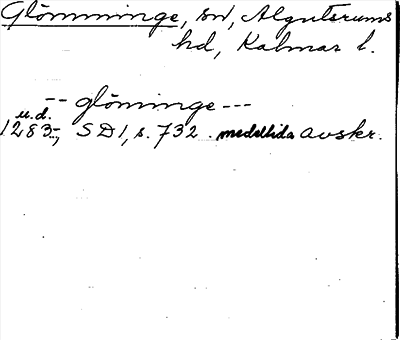 Glömminge, sn, Algutsrums
hd, Kalmar l.
-- glöminge ---
u.d.
1283, SD 1, s. 732. medeltida avskr.